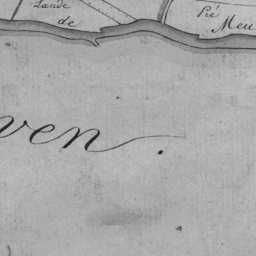 Lande
de
Pré
Meu
ven.